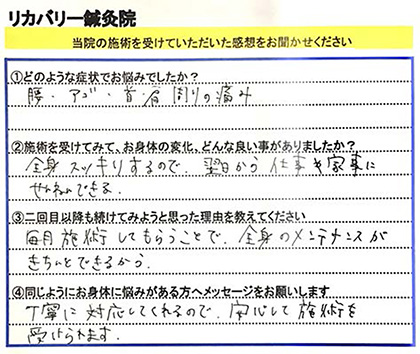 リカバリー鍼灸院
当院の施術を受けていただいた感想をお聞かせください
①どのような症状でお悩みでしたか？
腰・アゴ・首・肩周りの痛み
②施術を受けてみて、お身体の変化、どんな良い事がありましたか？
全身スッキリするので、翌日から仕事や家事に
せんねんできる。
③二回目以降も続けてみようと思った理由を教えてください
毎月施術してもらうことで、全身のメンテナンスが
きちんとできるから。
④同じようにお身体に悩みがある方へメッセージをお願いします
丁寧に対応してくれるので、安心して施術を
受けられます。